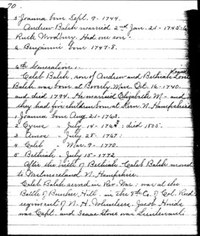 70
3 Joanna born Sept. 9. 1744.
Andrew Balch married 2nd Jan. 21-1745-6
Ruth Woodbury. Had one son:
4. Benjamin born 1747-8.
6th Generation:
Caleb Balch, son of Andrew and Bethiah
Balch was born at Beverly Mar. Oct. 16-1740.
and died 1824. He married Elizabeth M- and
they had five children born at New N. Hampshire.
1 Joanna born Aug. 21-1763.
2 Cyrus " July 14-1765: died 1805.
3 Amos " July 28-1767.
4 Caleb " Mar. 9-1770.
5 Bethiah " July 15-1772.
After the birth of Bethiah Caleb Balch moved
to Westmoreland N. Hampshire.
Caleb Balch served in Rev. War: was at the
Battle of Bunker Hill in the 8th Co. of Col. Reid
regiment of N. H. Volunteers. Jacob Hinds
was Capt. and Isaac Stone was Lieutenant.